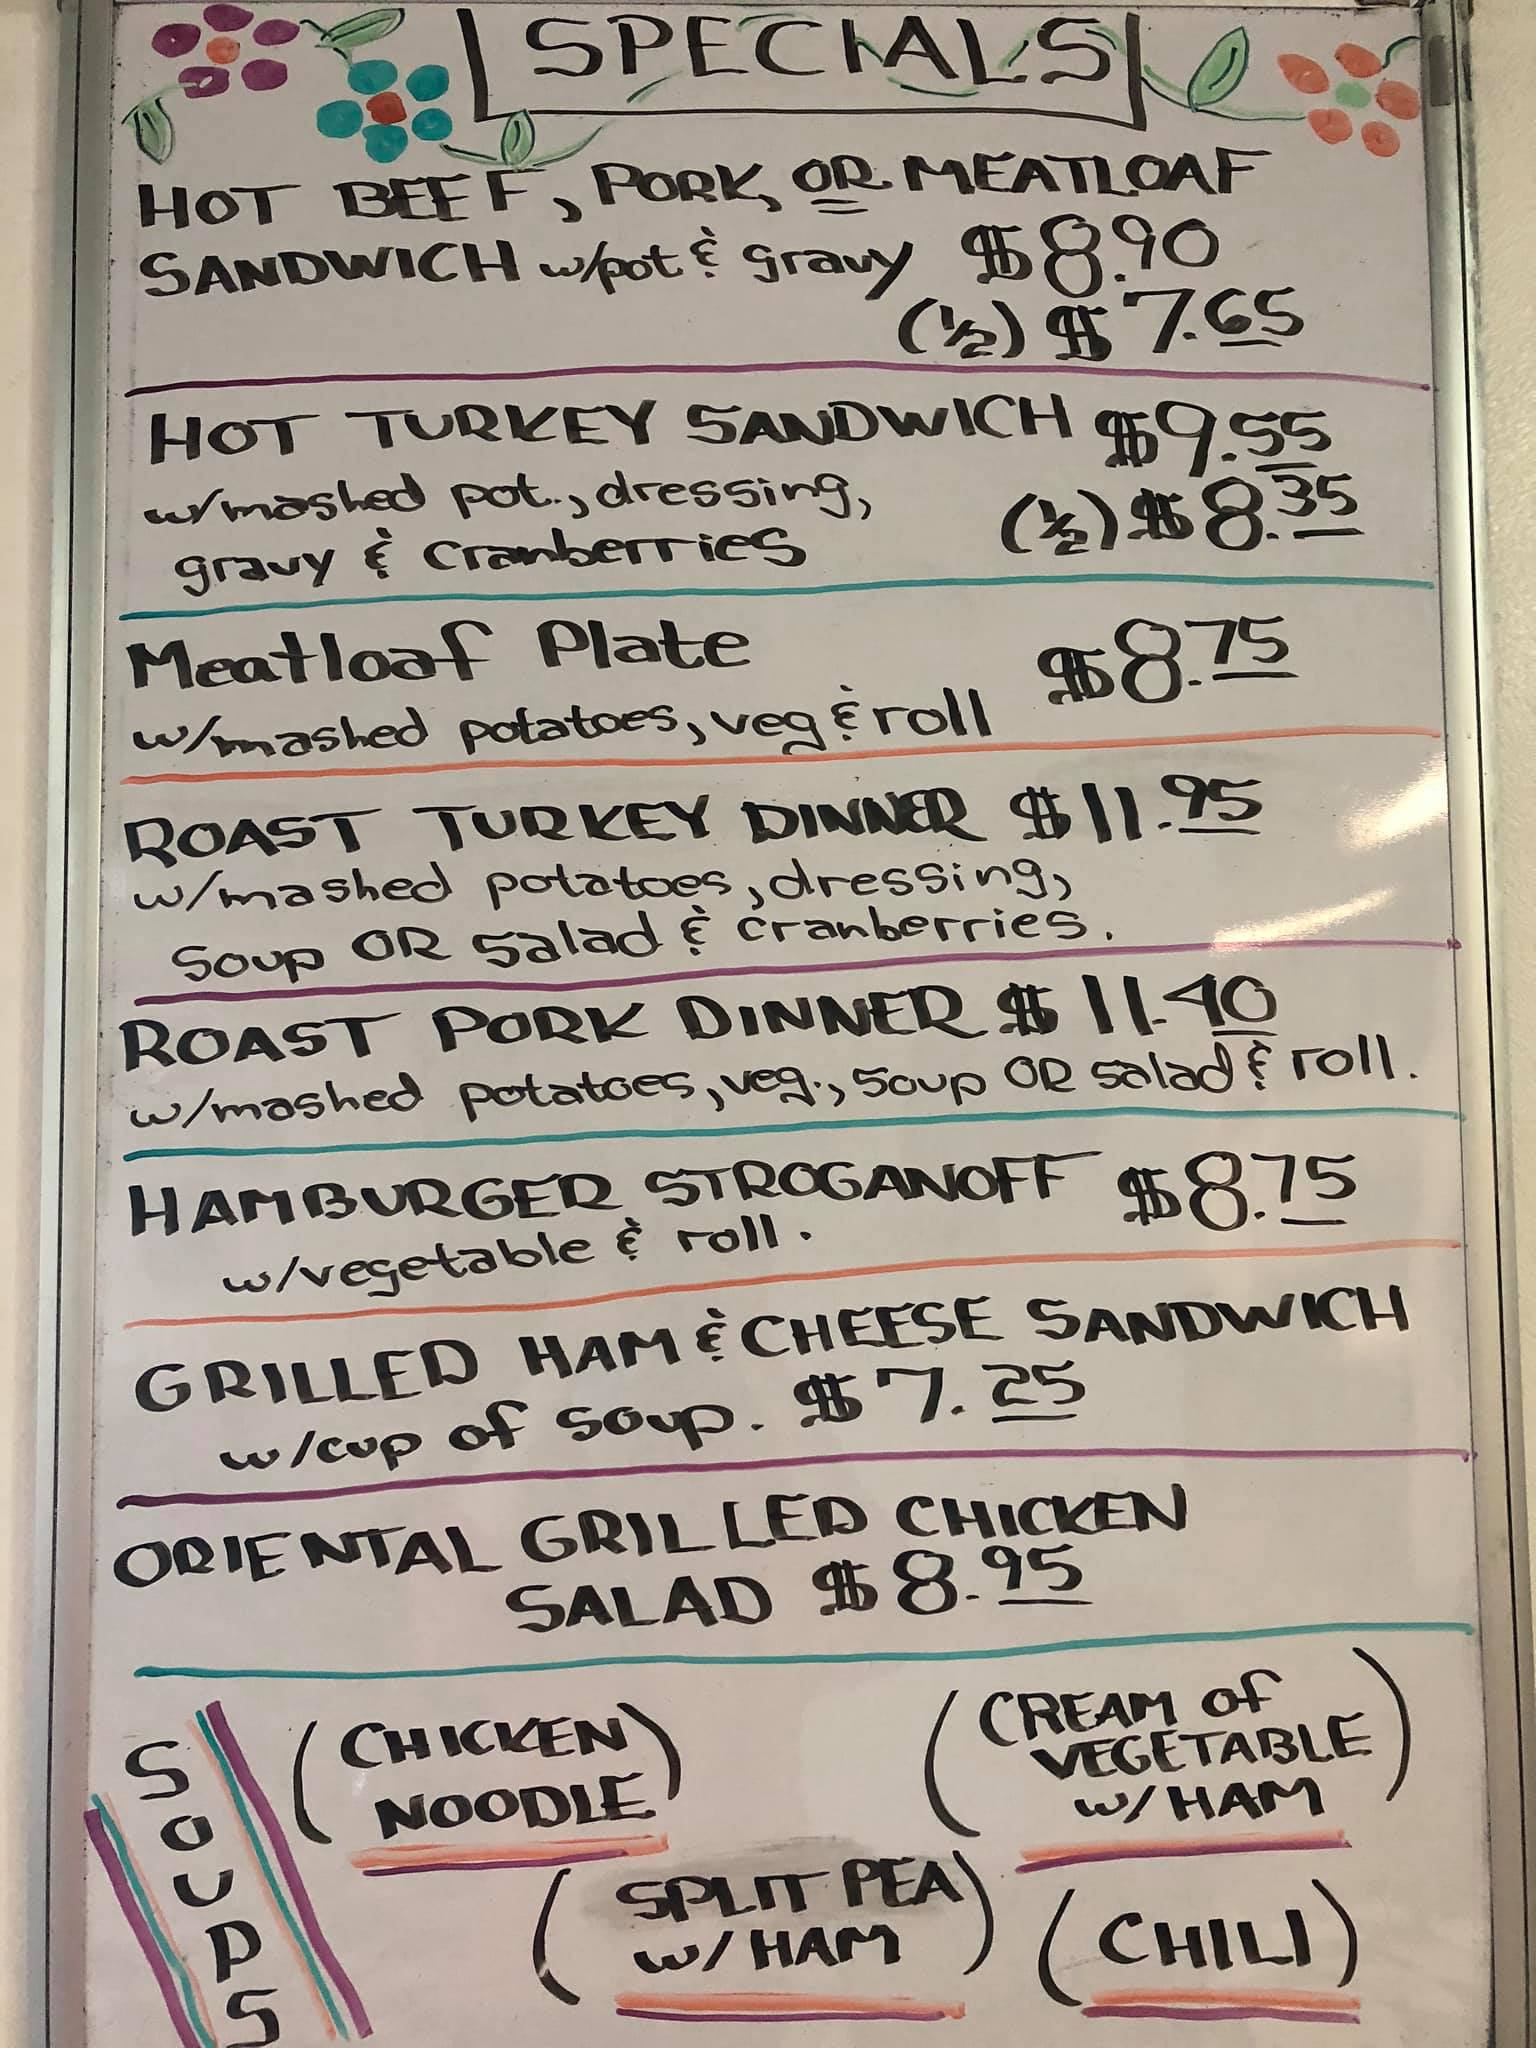 SPECIALS
HOT BEEF, PORK, OR MEATLOAF
SANDWICH w/pot & gravy $8.90
(1/2) $7.65
HOT TURKEY SANDWICH $9.55
w/mashed pot., dressing,
gravy & cranberries (1/2) $8.35
Meatloaf Plate $8.75
w/mashed potatoes, veg & roll
ROAST TURKEY DINNER $11.95
w/mashed potatoes, dressing,
soup OR salad & cranberries.
ROAST PORK DINNER $11.40
w/mashed potatoes, veg., soup OR salad & roll.
HAMBURGER STROGANOFF $8.75
w/vegetable & roll.
GRILLED HAM & CHEESE SANDWICH
w/cup of soup. $7.25
ORIENTAL GRILLED CHICKEN
SALAD $8.95
SOUPS
(CHICKEN
NOODLE)
(CREAM of
VEGETABLE
w/HAM)
(SPLIT PEA
w/HAM)
(CHILI)